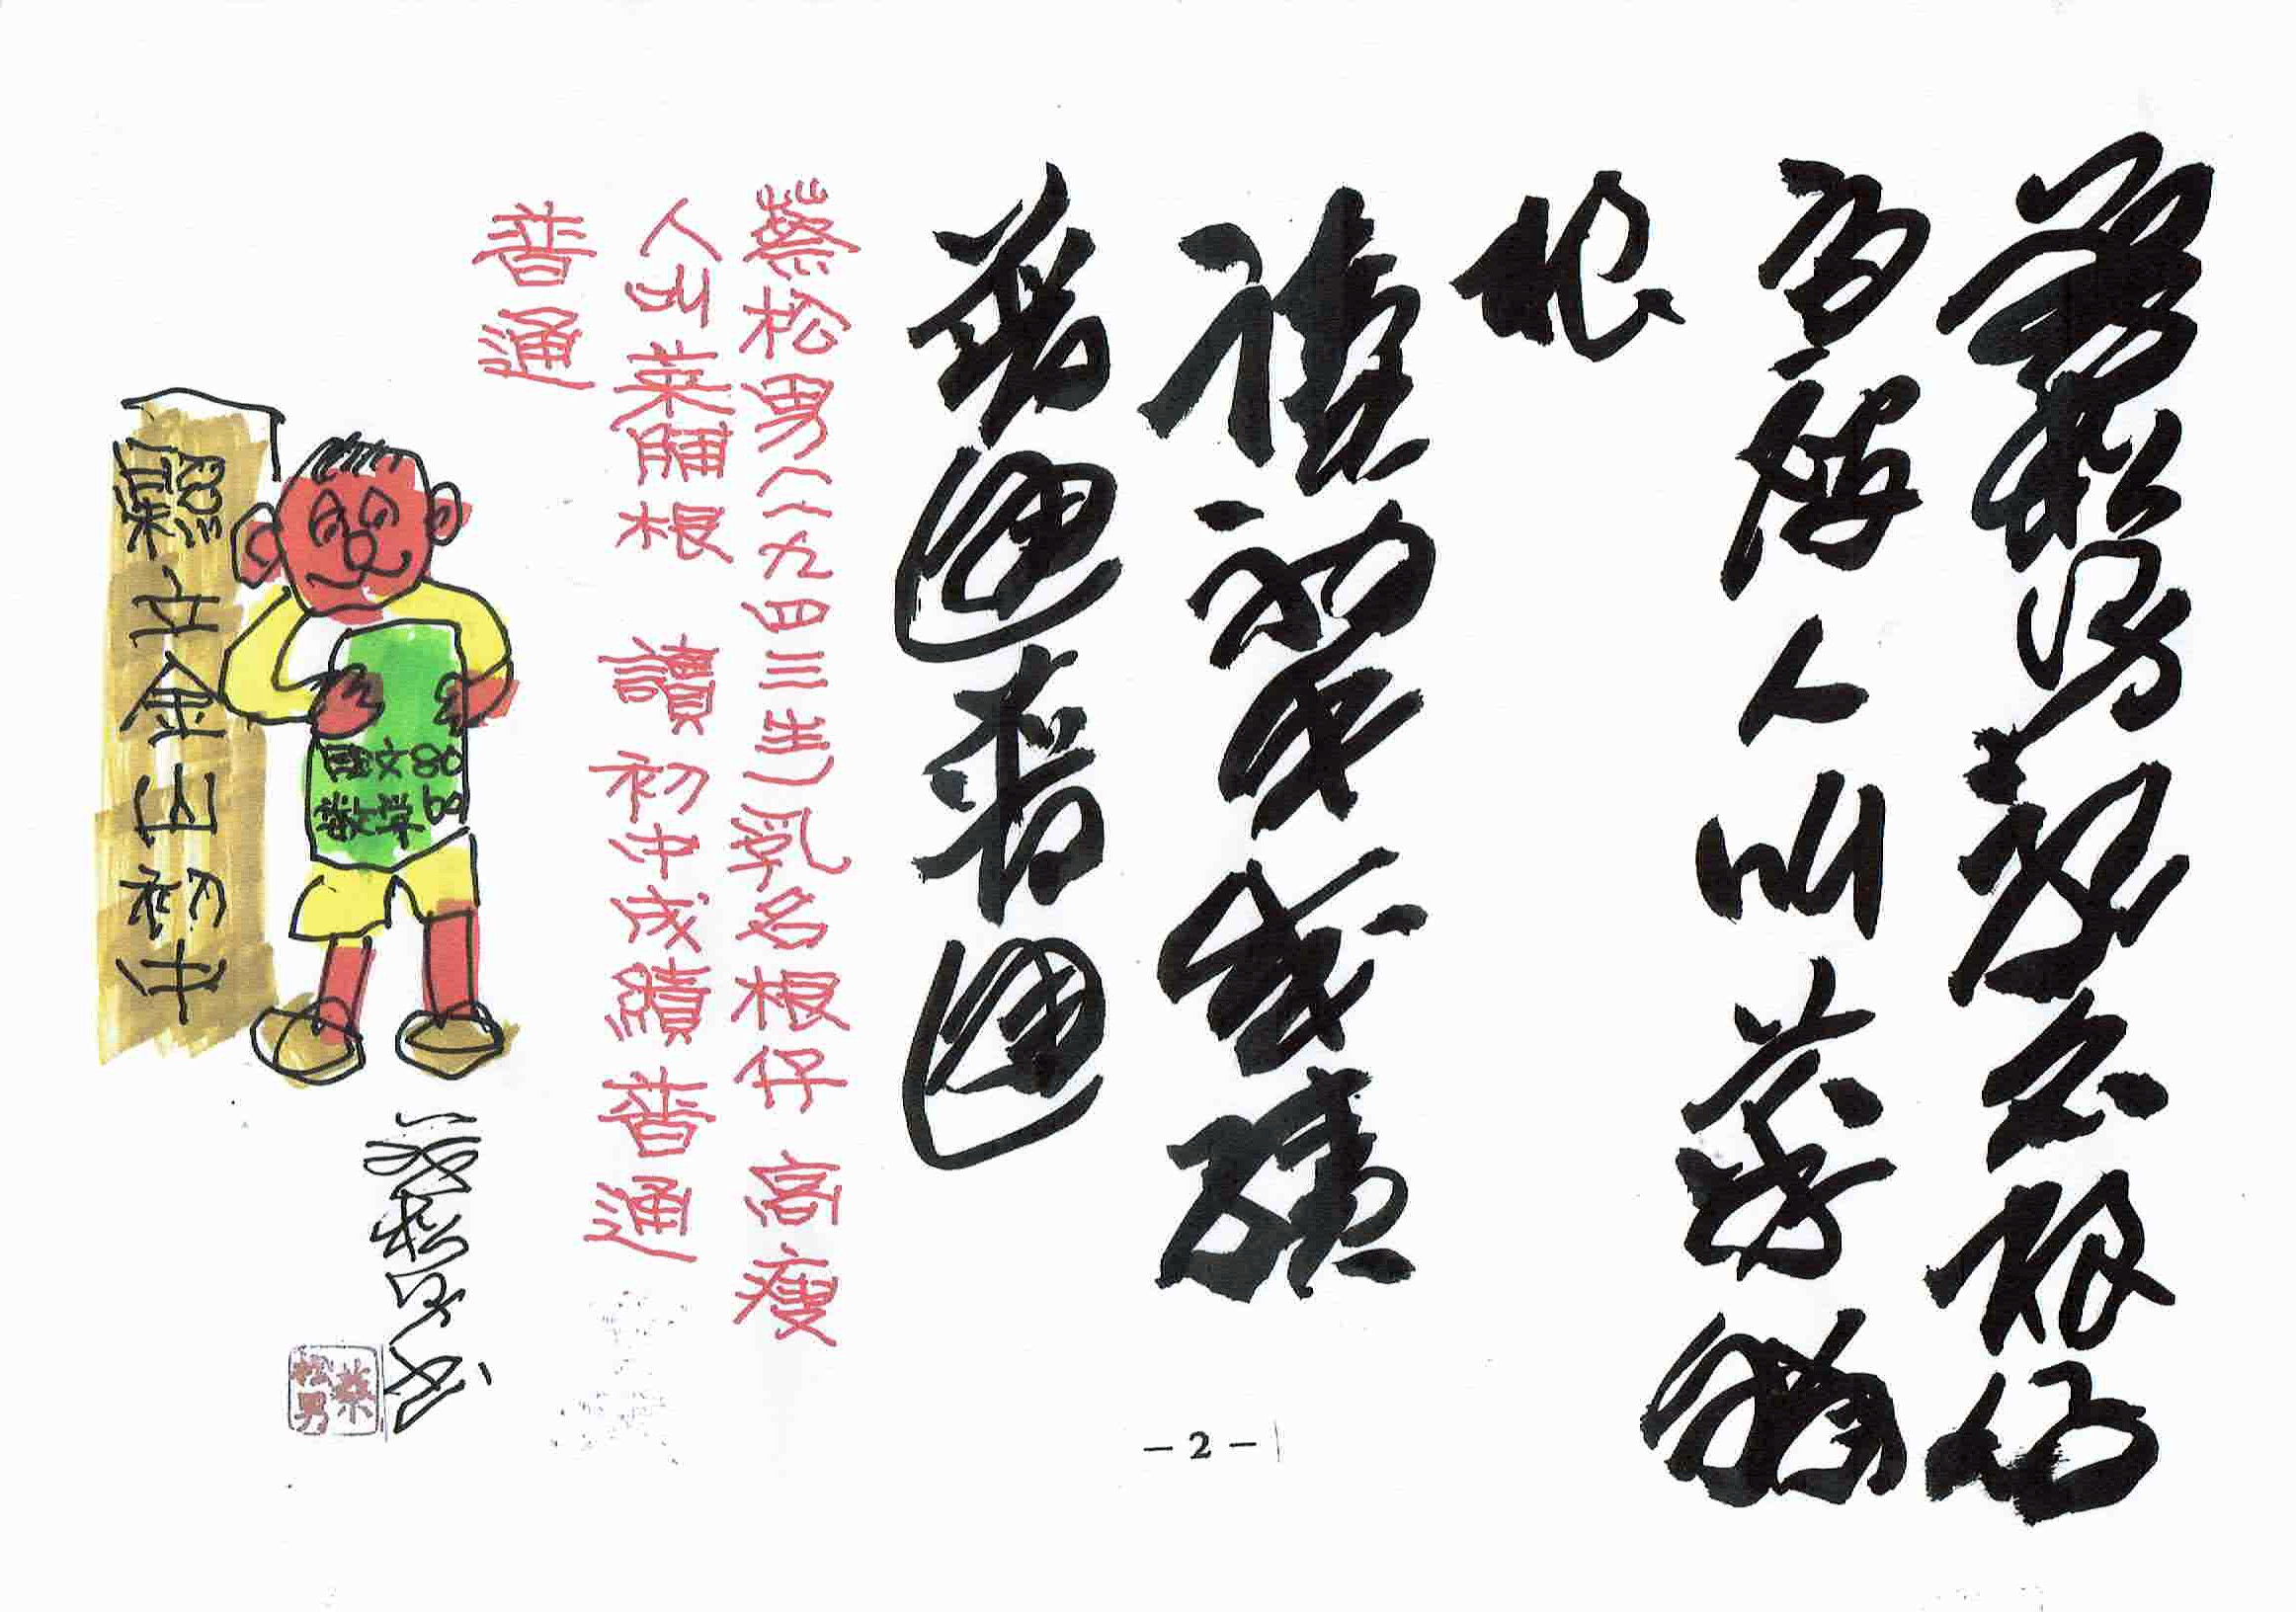 蔡松男乳名根仔
高瘦人叫菜脯
根
讀初中成績
普通普通
蔡松男(一九四三生)乳名根仔 高瘦
人叫菜脯根 讀初中成績普通
普通
國文80
數学60
縣立金山初中
蔡松男
蔡松男
-2-